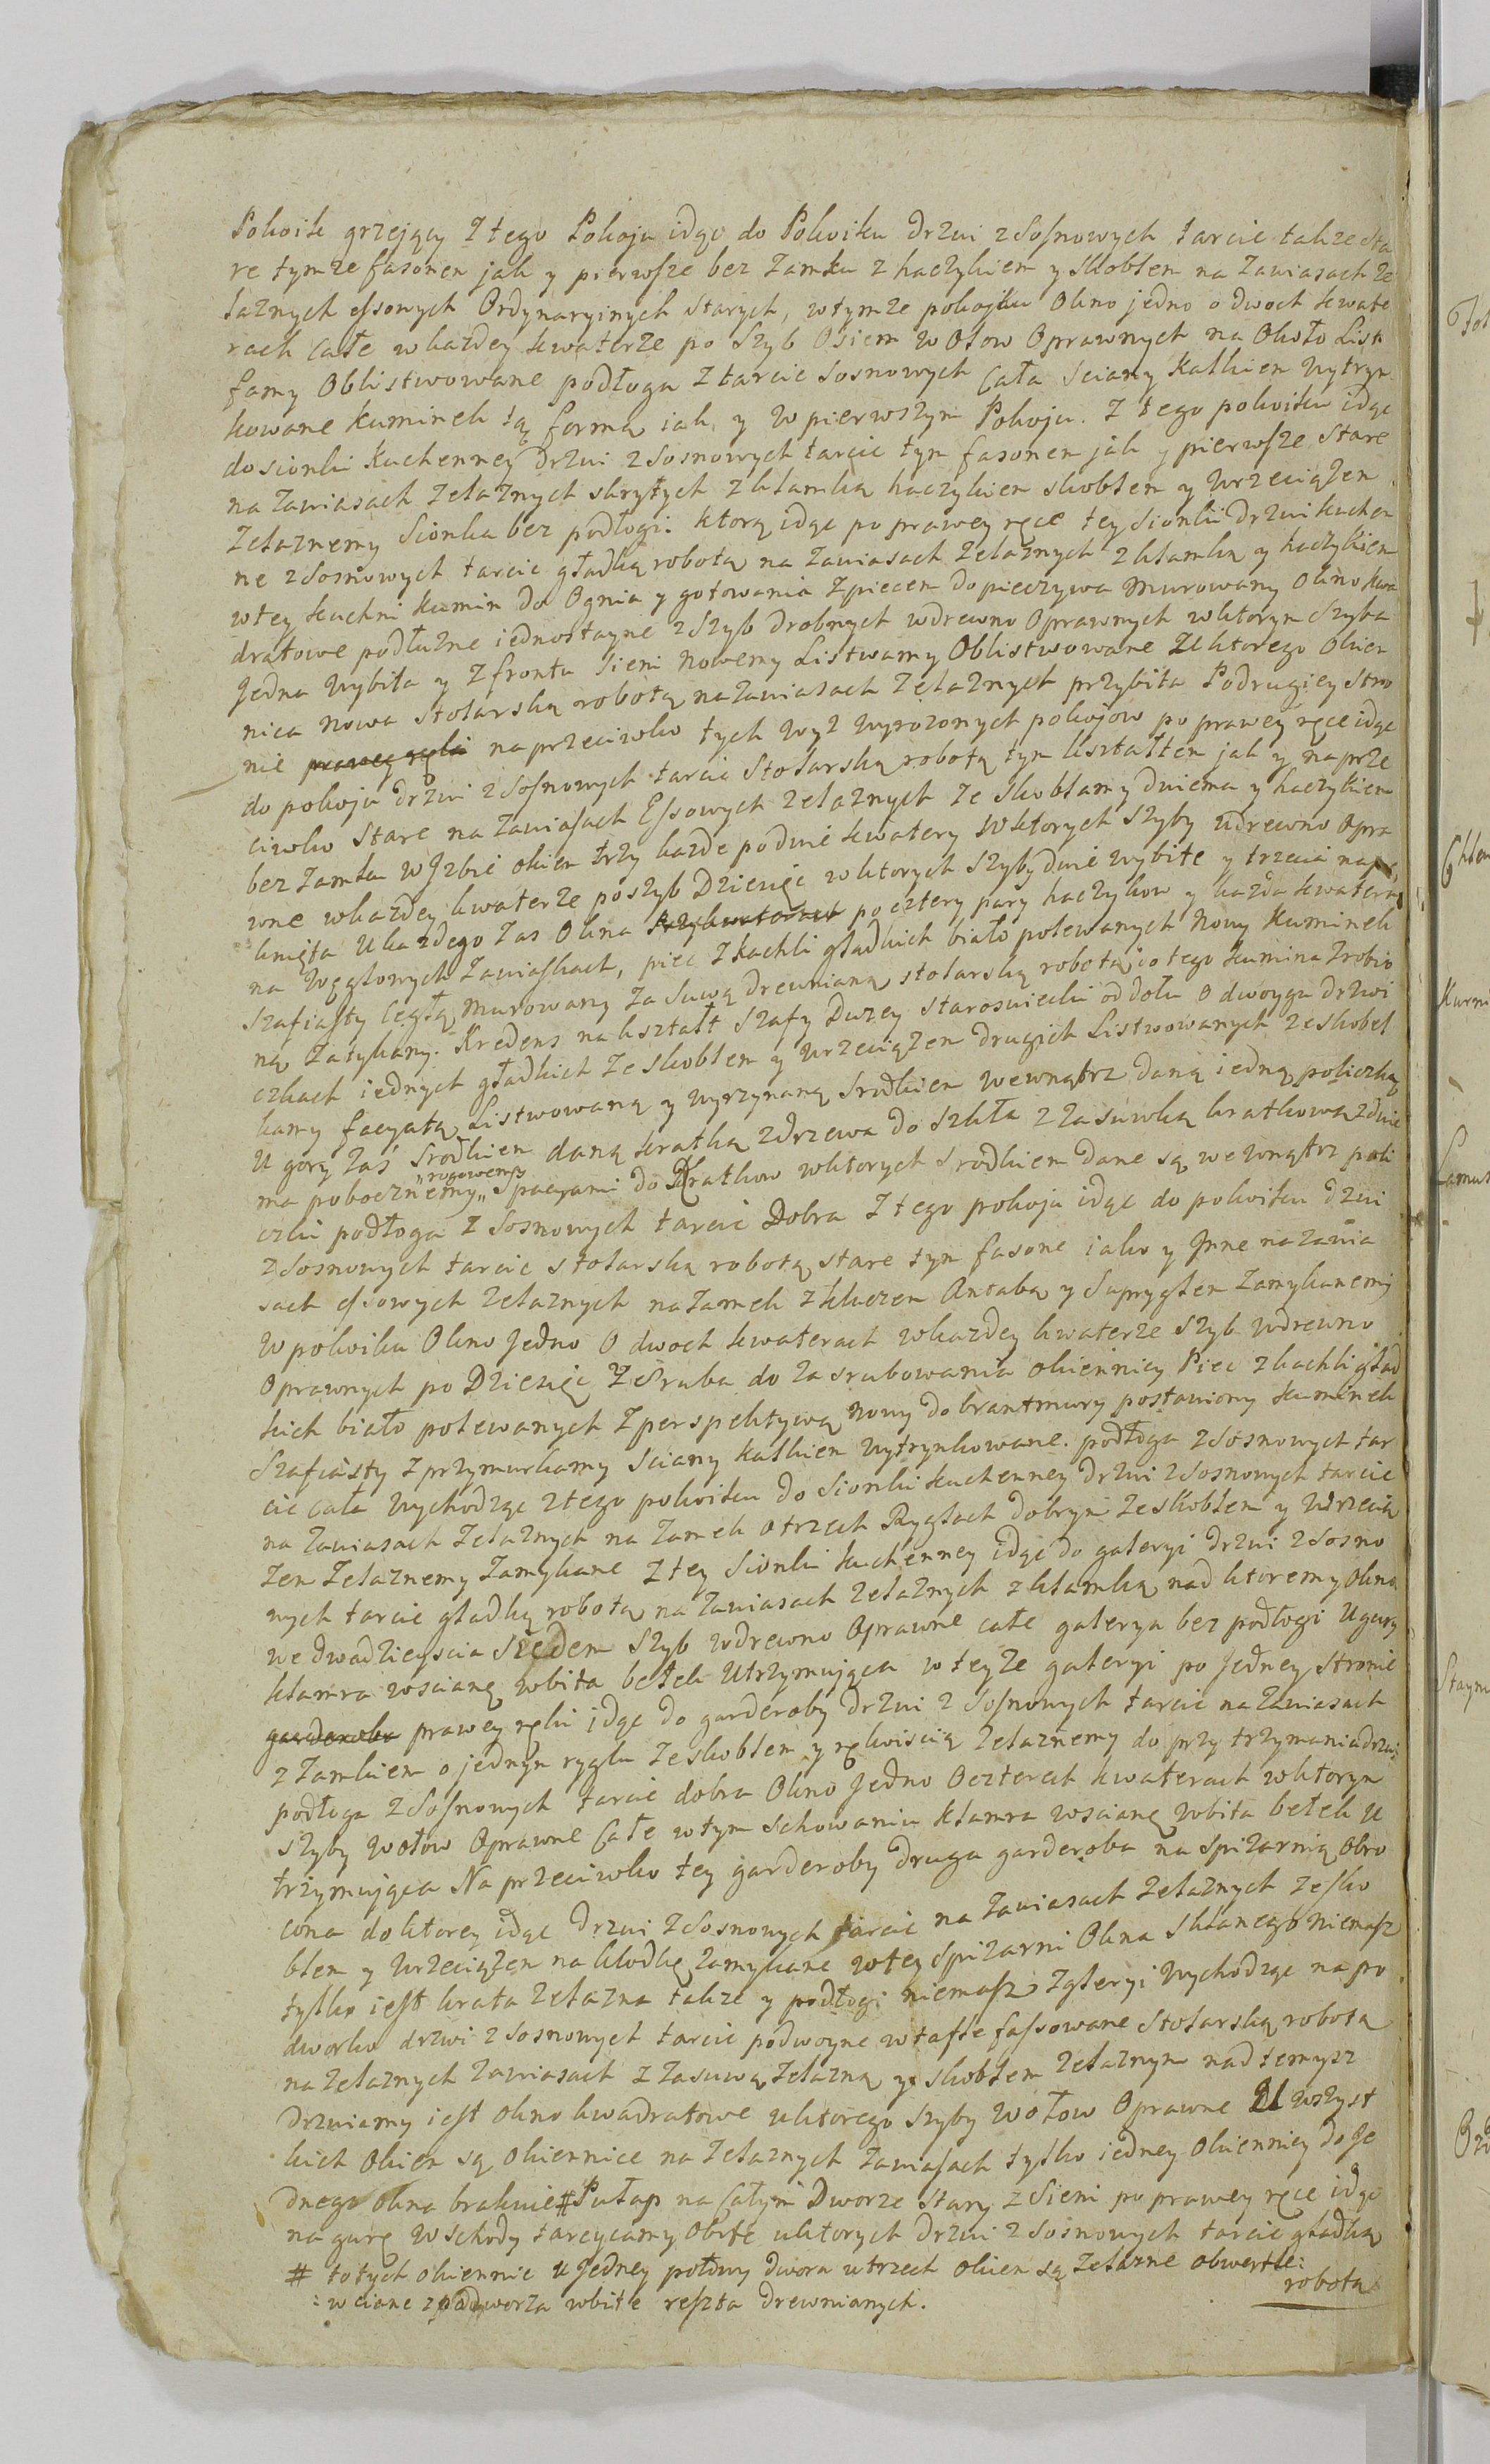 Pokoik grzejący Z tego Pokoju idąc do Pokoiku drzwi z Sosnowych tarcic takze Sta
re tymze fasonem jak y pierwsze bez Zamku z haczykiem y Skoblem na Zawiasach Ze
laznych essowych Ordynaryinych Starych, w tymze pokojku Okno jedno o dwoch kwate
rach Całe w kazdey kwaterze po Szyb Osiem w Ołow Oprawnych na Około List
famy Oblistwowane podłoga Z tarcic Sosnowych Cała Sciany Kalkiem Wytryn
kowane kuminek tą formą iak y W pierwszym Pokoju. Z tego pokoiku idąc
do sionki kuchenney Drzwi z Sosnowych tarcic tym fasonem jak y pierwsze Stare
na Zawiasach Zelaznych skrytych z klamką haczykiem skoblem y Wrzeciązem
Zelaznemy Sionka bez podłogi. Ktorą idąc po prawey ręce tey Sionki Drzwi kuchen
ne z Sosnowych tarcic gładką robotą na Zawiasach Zelaznych z klamką y haczykiem
w tey kuchni kumin do Ognia y gotowania Z piecem do pieczywa Murowany Okno kwa
dratowe podłużne iednostayne z Szyb drobnych w drewno Oprawnych w ktorym Szyba
Jedna Wybita y Z frontu Sieni Nowemy Listwamy Oblistwowane U ktorego Okien
nica Nowa Stolarską robotą na Zawiasach Zelaznych przybita Po drugiey Stro
nie prawey ręki naprzeciwko tych Wyż Wyrażonych pokojow po prawey ręce idąc
do pokoju drzwi z Sosnowych tarcic Stolarską robotą tym kształtem jak y naprze
ciwko Stare na Zawiasach Essowych Zelaznych Ze Skoblamy dwiema y haczykiem
bez Zamku W Jzbie okien trzy kazde po dwie kwatery W ktorych Szyby w drewno Opra
wne w kazdey kwaterze po szyb Dziesięć w ktorych Szyby dwie wybite y trzecia nap
knięta U kazdego Zas Okna po cztery pary haczykow y kazda kwatera
na Węgłowych Zawiaskach, piec Z kachli gładkich biało polewanych Nowy Kuminek
Szafiasty Cegłą Murowany Zasuwą drewnianą stolarską robotą do tego kumina Zrobio
ną Zatykany. Kredens na kształt Szafy Duzey Staroswiecki od dołu O dwoygu drzwi
czkach iednych gładkich Ze Skoblem y Wrzeciązem drugich Listwowanych ze skobel
kamy facyatą Listwowaną y Wyrzynaną Srodkiem Wewnątrz daną iedną policzką
U gory Zaś Srodkiem daną kratką z drzewa do Szkła z Zasuwką kratkową z dwie
ma pobocznemy „rogowemy„ Spacyami do Kratkow w ktorych Srodkiem dane są we Wnątrz poli
czki podłoga Z Sosnowych tarcic Dobra Z tego pokoju idąc do pokoiku drzwi
z Sosnowych tarcic stolarską robotą stare tym fasone iako y Jnne na zawia
sach essowych Zelaznych na Zamek z kluczem Antabą y Sprzęglem Zamykanemi
W pokoiku Okno Jedno O dwoch kwaterach w kazdey kwaterze Szyb w drewno
Oprawnych po Dziesięć Ze Sruba do Zasrubowania okiennicy Piec z kachli gład
kich biało polewanych Z perspektywą Nowy do brantmury postawiony kuminek
Szafiasty z przymurkamy Sciany Kalkiem Wytrynkowane. podłoga z Sosnowych tar
cic Cała Wychodząc z tego pokoiku do Sionki kuchenney Drzwi z Sosnowych tarcic
na Zawiasach Zelaznych na Zamek o trzech Ryglach dobrym Ze Skoblem y Wrzecią
zem Zelaznemy Zamykane Z tey Sionki kuchenney idąc do galeryi drzwi z Sosno
wych tarcic gładką robotą na Zawiasach Zelaznych z klamką, nad ktoremy Okno
we dwadziescia Siedem Szyb w drewno Oprawne całe galerya bez podłogi U gury
klamra w scianę wbita belek Utrzymująca w teyze galeryi po Jedney Stronie
garderoba prawey ręki idąc do garderoby drzwi z Sosnowych tarcic na Zawiasach
z Zamkiem o jednym ryglu Ze skoblem y rękoiscią Zelaznemy do przytrzymania drzwi
podłoga z Sosnowych tarcic dobra Okno Jedno O czterech kwaterach w ktorym
Szyby w ołow Oprawne Całe w tym Schowaniu klamra w scianę wbita belek u
trzymująca Na przeciwko tey garderoby druga garderoba na Spizarnią Obro
cona do ktorey idąc Drzwi Z Sosnowych tarcic na Zawiasach Zelaznych ze sko
blem y Wrzeciązem na kłodkę zamykane w tey Spizarni Okna Sklanego niemasz
tylko iest krata Zelazna takze y podłogi niemasz Z galeryi Wychodząc na po
dworko drzwi z Sosnowych tarcic podwoyne w tafle fassowane Stolarską robotą
na Zelaznych Zawiasach Z Zasuwą Zelazną y skoblem Zelaznym nad temysz
Drzwiamy iest okno kwadratowe u ktorego Szyby w ołow Oprawne U wszyst
kich Okien są Okiennice na Zelaznych Zawiasach tylko iedney Okiennicy do Je
dnego okna brakuie # Pułap na Całym Dworze Stary z Sieni po prawey ręce idąc
na gurę Wschody tarcycamy Obite u ktorych drzwi z Sosnowych tarcic gładką
robotą
# to tych okiennic u Jedney połowy dwora u trzech okien są Zelazne obwertle:
: w ciane z podworza wbite reszta drewnianych.